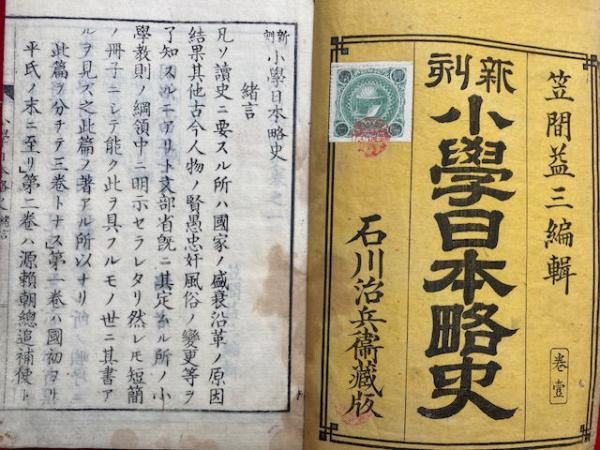 笠間益三編輯
新刻
小學日本略史
卷壹
石川治兵衞藏版
新刻小學日本略史
緒言
凡ソ讀史ニ要スル所ハ國家ノ盛衰沿革ノ原因
結果其他古今人物ノ賢愚忠奸風俗ノ變更等ヲ
了知スルニアリト文部省旣ニ其定ムル所ノ小
學教則ノ綱領中ニ明示セラレタリ然レ𪜈短簡
ノ冊子ニシテ能ク此ヲ具フルモノ世ニ其書ア
ルヲ見ズ之此篇ノ著アル所以ナリ
此篇ヲ分チテ三卷トナス第一卷ハ國初ヨリ
平氏ノ末ニ至リ第二卷ハ源賴朝總追補使ト